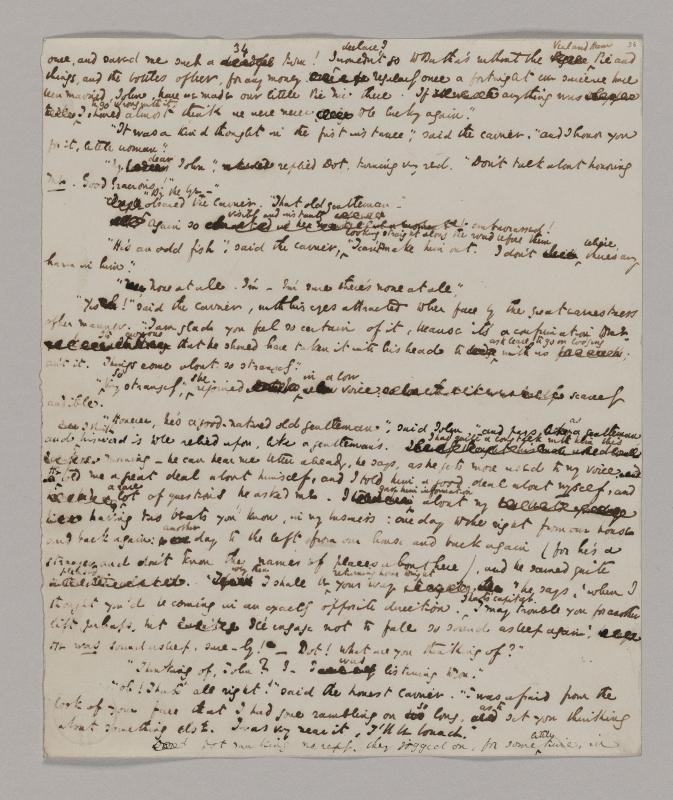 34
declare I
Veal and Ham
36
once, and saved me such a turn! I wouldn't go to Bertha's without the Pie and
things, and the bottles of Beer, for any money. Regularly once a fortnight ever since we have
been married, John, have we made our little Pic Nic there. If anything was
to go wrong with it, I should almost think we were never to be lucky again."
"It was a kind thought in the first instance," said the carrier, "and I honor you
for it, little woman."
"My dear John," replied Dot, turning very red. "Don't talk about honoring
me. Good Gracious!"
"By the bye —" observed the carrier. "That old gentleman —"
Again so visibly and instantly embarrassed!
"He's an odd fish," said the carrier, looking straight along the road before them. "I can't make him out. I don't believe there's any
harm in him."
"None at all. I'm — I'm sure there's none at all,"
"Yes!" said the carrier, with his eyes attracted to her face by the great earnestness
of her manner. "I am glad you feel so certain of it, because it's a confirmation to me.
It's curious that he should have taken it into his head to ask leave to go on lodging with us;
an't it. Things come about so strangely."
"So very strangely," she rejoined in a low voice, scarcely
audible.
"However, he's a good-natured old gentleman," said John, "and pays as a gentleman
and his word is to be relied upon, like a gentleman's. I had quite a long talk with him this
morning — he can hear me better already, he says, as he gets more used to my voice.
He told me a great deal about himself, and I told him a good deal about myself, and
a rare lot of questions he asked me. I gave him information about my
having two beats you know, in my business: one day to the right from our house
and back again: another day to the left from our house and back again (for he's a
stranger and don't know the names of places about here), and he seemed quite
pleased. 'Why then I shall be returning home tonight your way' he says, 'when I
thought you'd be coming in an exactly opposite direction. That's capital. I may trouble you for another
lift perhaps, but I'll engage not to fall so sound asleep again.'
He was sound asleep, sure-ly! — Dot! what are you thinking of?"
"Thinking of, John? I — I was listening to you."
"Oh! That's all right!" said the honest carrier. "I was afraid from the
look of your face that I had gone rambling on so long, as to set you thinking
about something else. I was very near it, I'll be bound."
Dot making no reply, they jogged on, for some little time, in